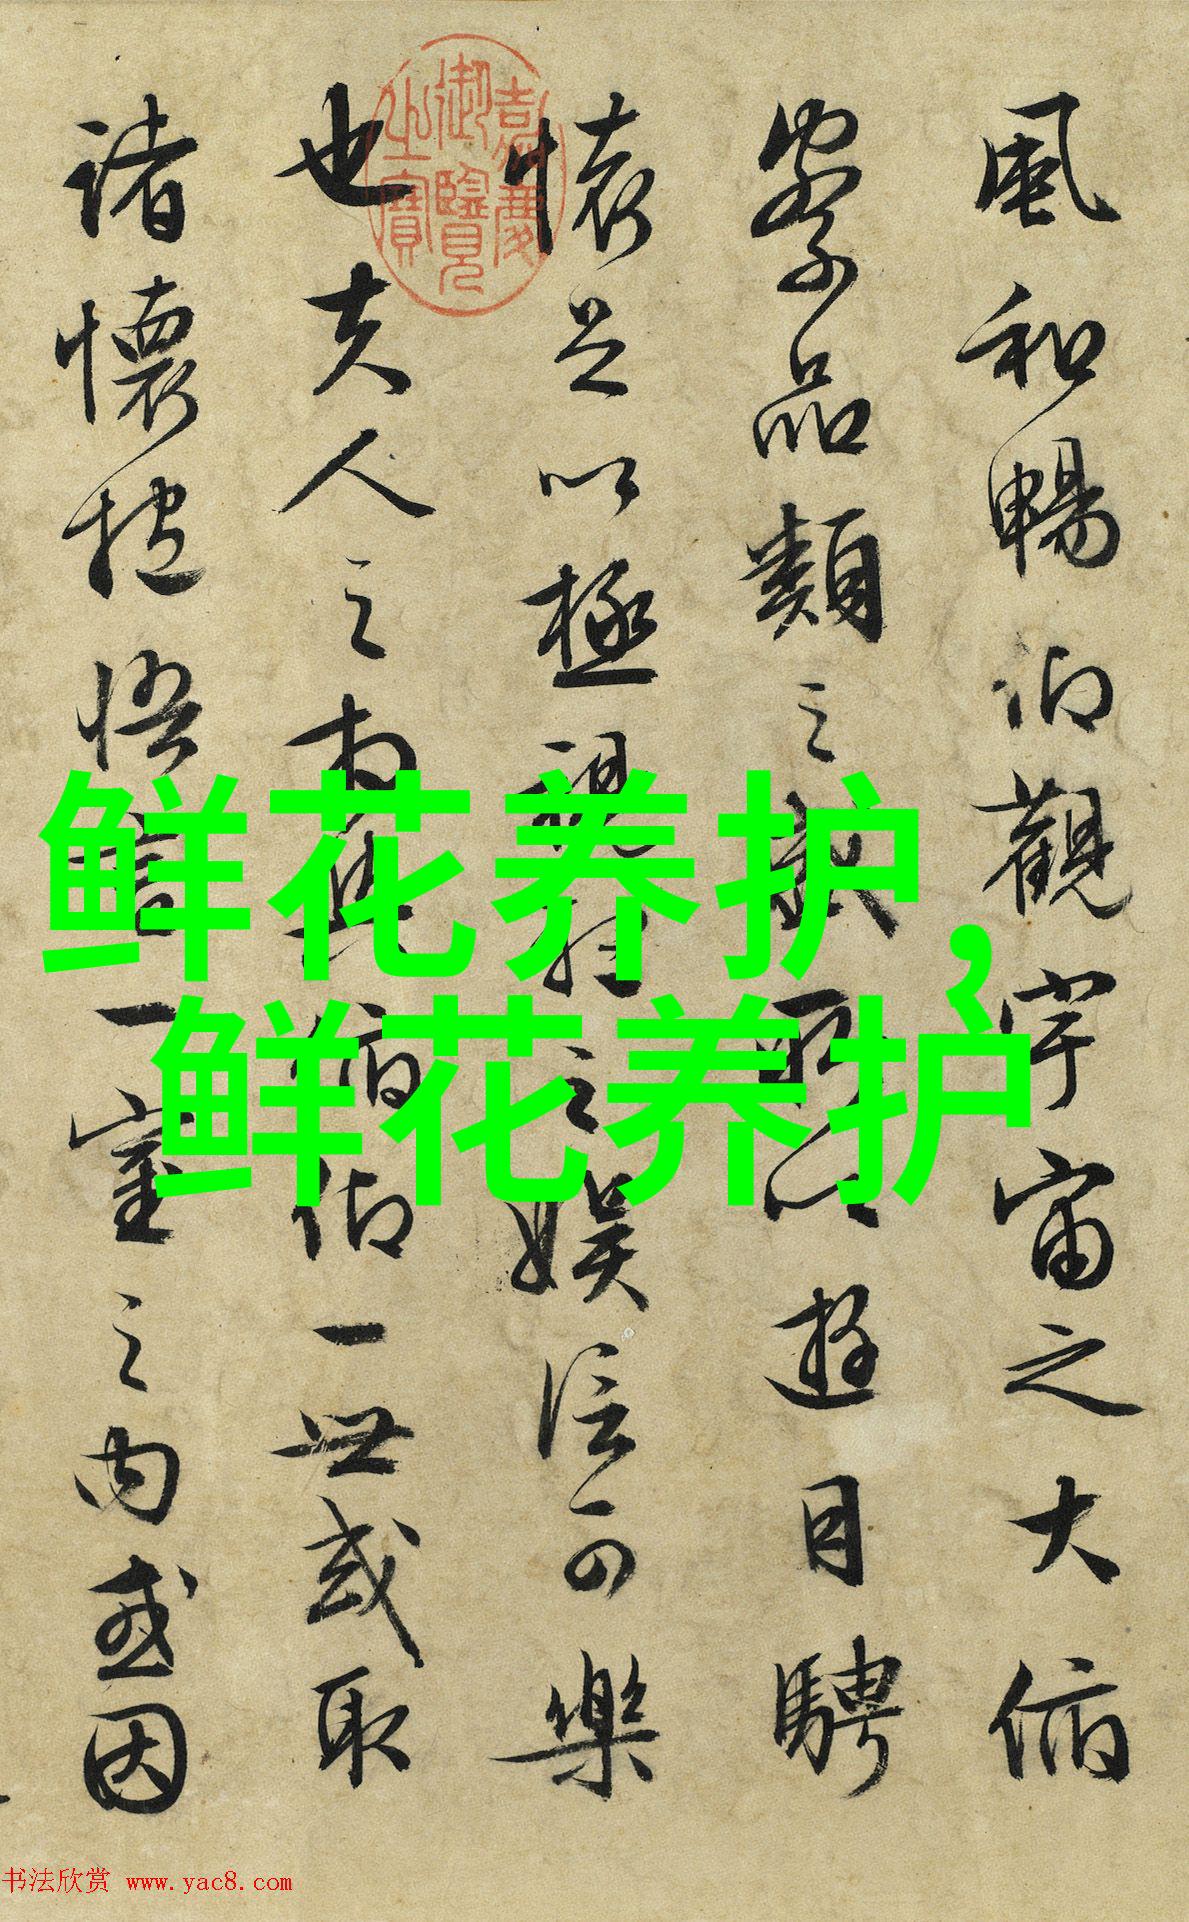 風和暢仰觀宇宙之大俯
察品類之盛所以遊目騁
懷足以極視聽之娛信可樂
也夫人之相與俯仰一世或取
諸懷抱悟言一室之內或因
嘉慶御覽之寶
鲜花养护，
鲜花养护
书法欣赏 www.yac8.com